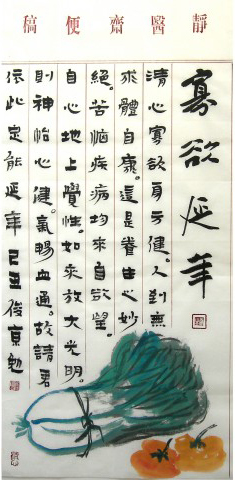 靜醫齋便稿
寡欲延年
清心寡欲身方健。人到無
求體自康。這是養生心妙
絕。苦惱疾病均來自欲望。
自心地上覺性。如來放大光明。
則神怡心健。氣暢血通。故請君
依此定能延年 己丑 俊京勉